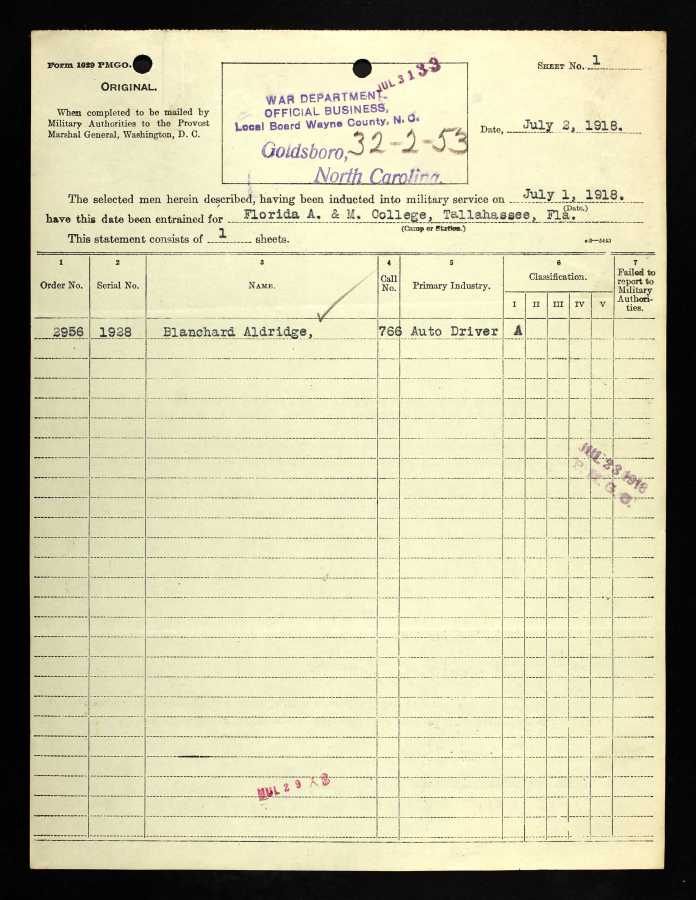 Form 1029 PMGO.
ORIGINAL.
When completed to be mailed by
Military Authorities to the Provost
Marshal General, Washington, D. C.
JUL 31 33
WAR DEPARTMENT
OFFICIAL BUSINESS,
Local Board Wayne County, N. C.
Goldsboro, 32-2-53
North Carolina.
SHEET No. 1
Date, July 2, 1918.
The selected men herein described, having been inducted into military service on July 1, 1918.
(Date.)
have this date been entrained for Florida A. & M. College, Tallahassee, Fla.
(Camp or Station.)
This statement consists of 1 sheets.
1 2 3 4 5 6 7
Order No. Serial No. NAME. Call No. Primary Industry. Classification. Failed to report to Military Authorities.
I II III IV V
2956 1928 Blanchard Aldridge, 766 Auto Driver A
JUL 23 1918
P. M. G. O.